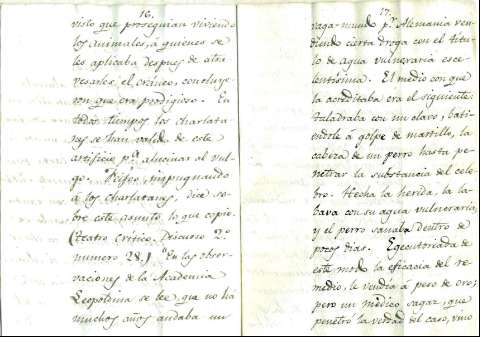 16.
visto que proseguian viviendo
los animales, á quienes se
les aplicaba despues de atra
vesarles el cráneo, concluye
ron que era prodigioso. En
todos tiempos los charlata
nes se han valido de este
artificio p.ª alucinar al vul
go. Feijoo, impugnando
á los charlatanes, dice so
bre este asunto lo que copio.
(Teatro Crítico, Discurso 2.º
numero 28.) "En las obser
vaciones de la Academia
Leopoldina se lee, que no há
muchos años andaba un
17.
vaga-mundo p.r Alemania ven
diendo cierta droga con el titu
lo de agua vulneraria esce
lentisima. El medio con que
la acreditaba era el siguiente:
taladraba con un clavo, bati
endole á golpe de martillo, la
cabeza de un perro hasta pe
netrar la substancia del cele
bro. Hecha la herida, la la
bava con su agua vulneraria,
y el perro sanaba dentro de
pocos dias. Egecutoriada de
este modo la eficacia del re
medio, le vendia á peso de oro;
pero un médico sagaz, que
penetró la verdad del caso, vino